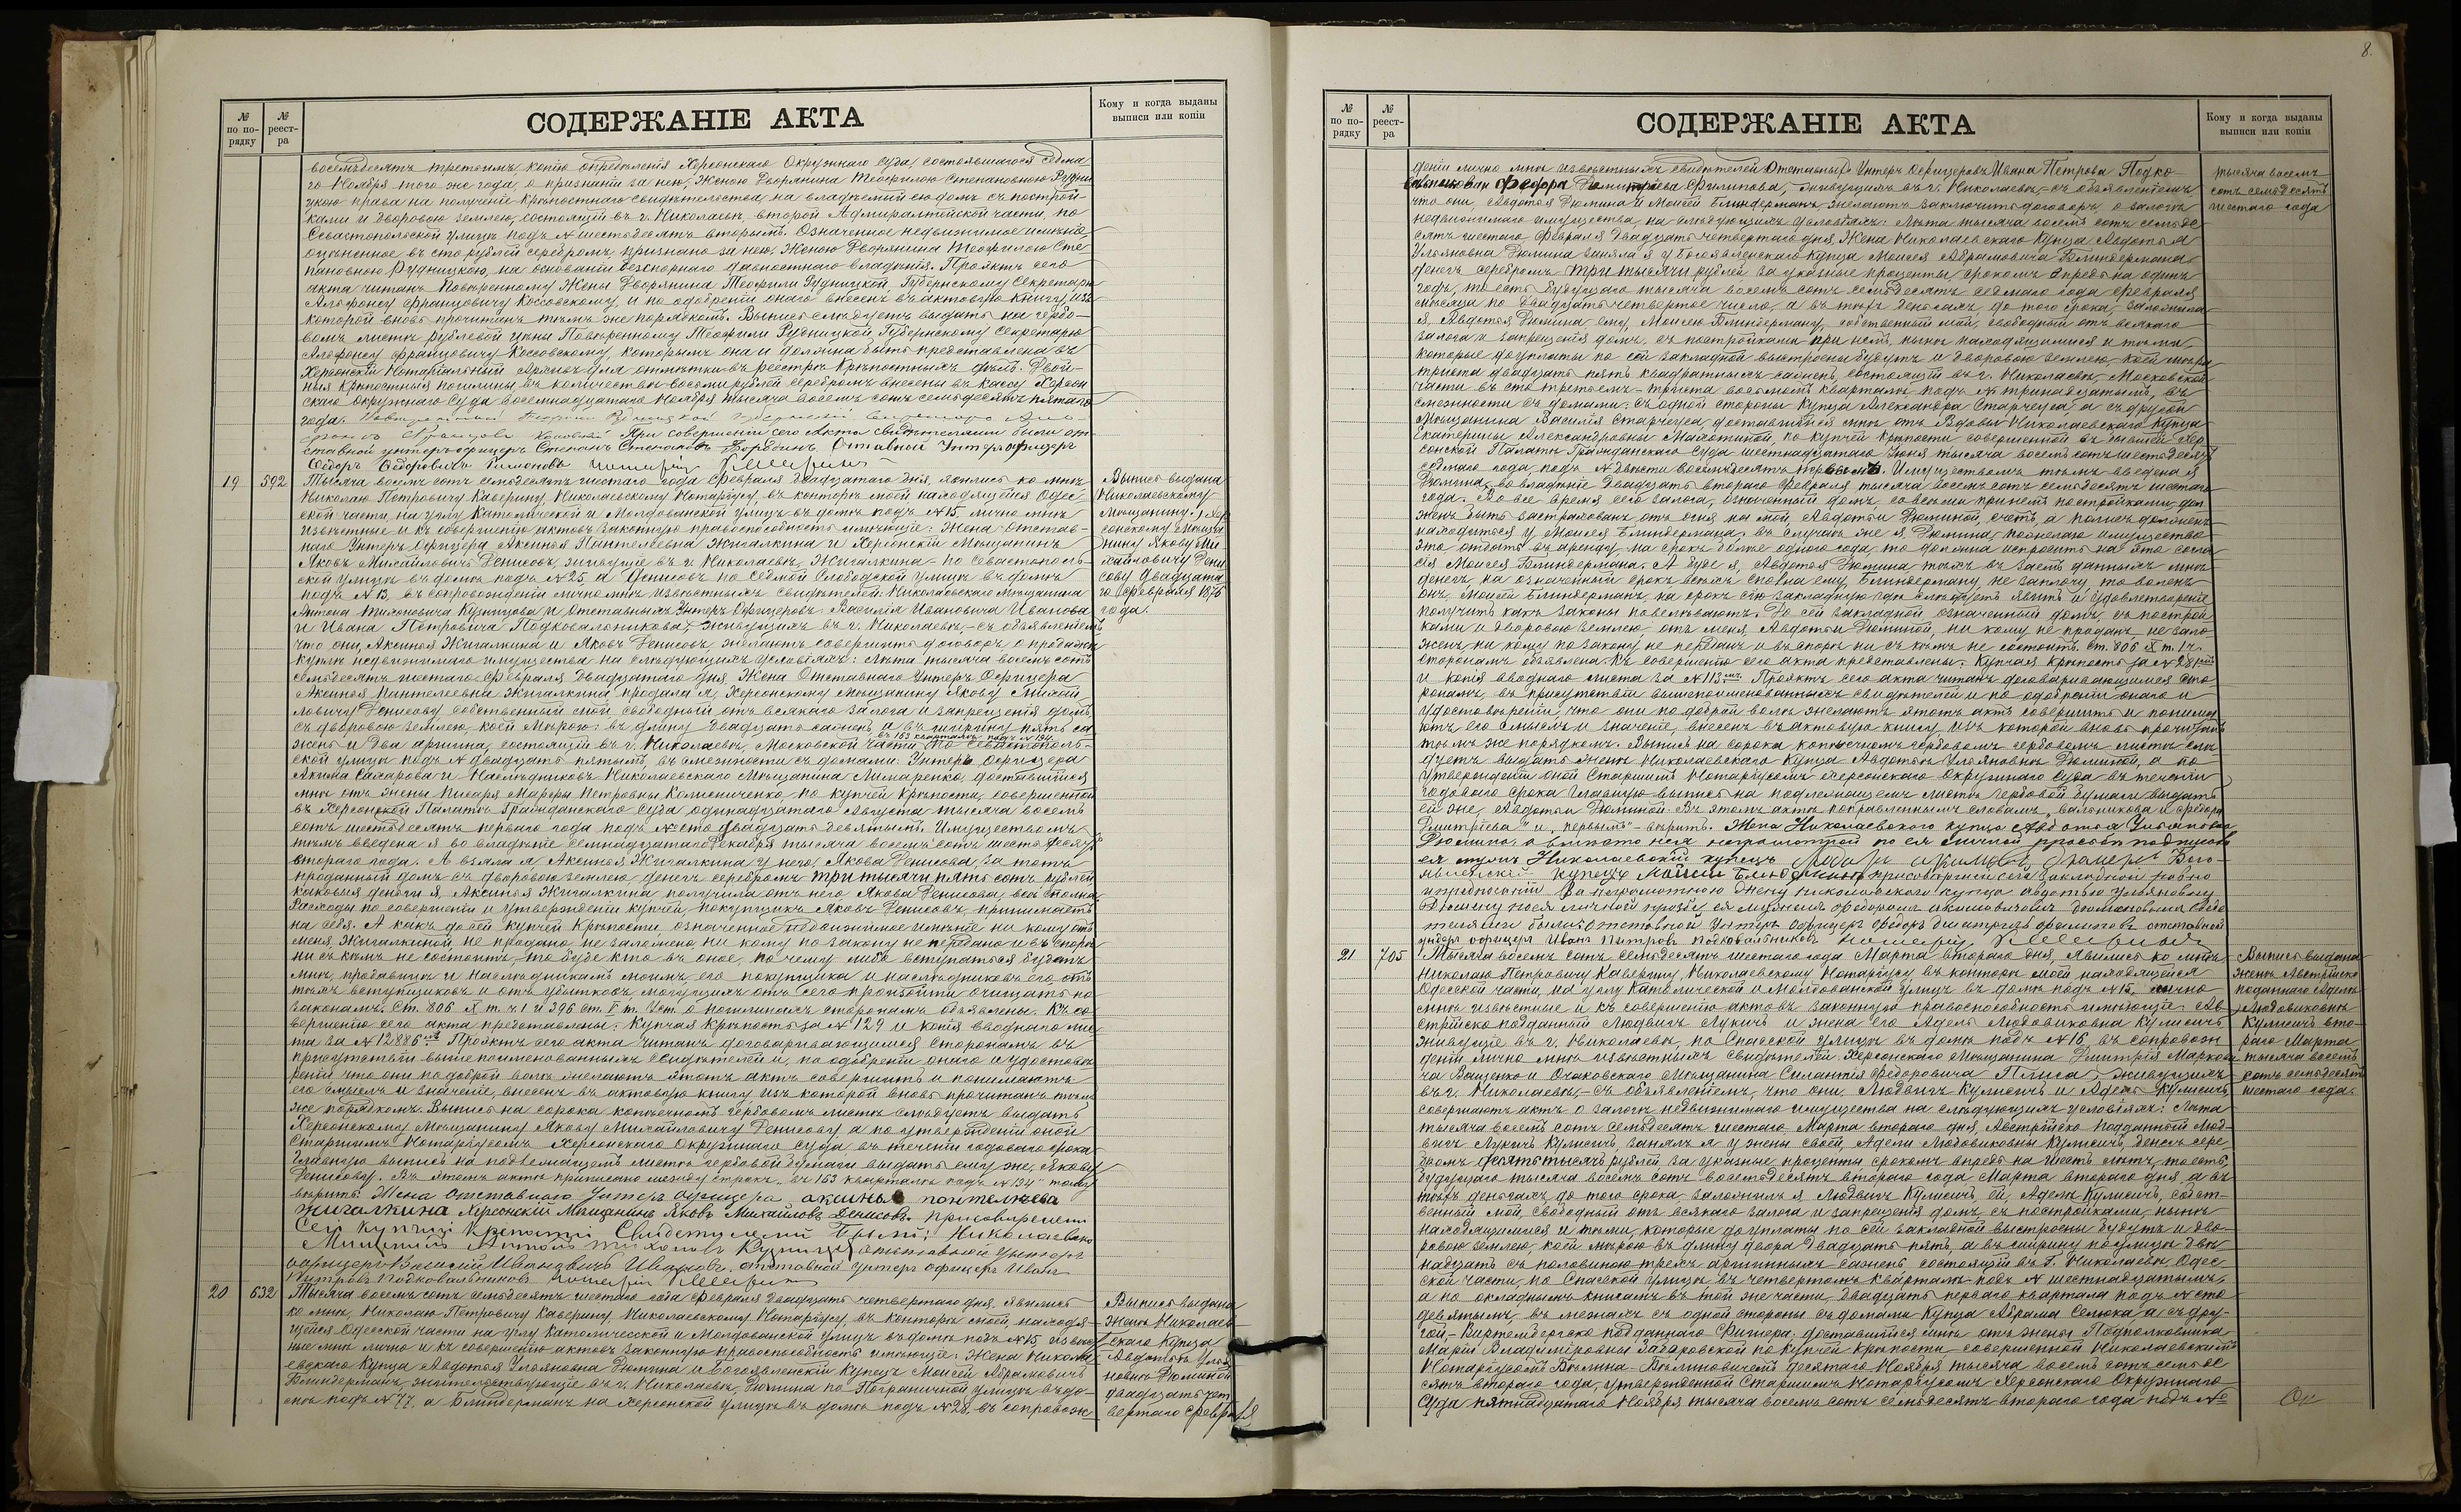 № по по-рядку
№ реест-ра
СОДЕРЖАНІЕ АКТА
Кому и когда выданы выписи или копіи
восемьдесятъ третьимъ, копію опредѣленія Херсонскаго Окружнаго Суда, состоявшагося седма
го Ноября того же года, о признаніи за нею, Женою Дворянина Теофилою Степановною Рудниц
кою права на полученіе крѣпостнаго свидѣтельства на владѣемый ею домъ съ построй-
ками и дворовою землею, состоящій въ г. Николаевѣ, второй Адмиралтейской части, по
Севастопольской улицѣ подъ № шестьдесятъ вторымъ. Означенное недвижимое имѣніе
оцѣненное въ сто рублей серебромъ, признано за нею, Женою Дворянина Теофилою Сте
пановною Рудницкою, на основаніи безспорнаго давностнаго владѣнія. Проэктъ сего
акта читанъ Повѣренному Жены Дворянина Теофили Рудницкой, Губернскому Секретарю
Альфонсу Францовичу Коссовскому, и по одобреніи онаго внесенъ въ актовую книгу, изъ
которой вновь прочитанъ тѣмъ же порядкомъ. Выпись слѣдуетъ выдать на гербо-
вомъ листѣ рублевой цѣны Повѣренному Теофили Рудницкой Губернскому Секретарю
Альфонсу Францовичу Коссовскому, которымъ она и должна быть представлена въ
Херсонскій Нотаріальный Архивъ для отмѣтки въ реестрѣ крѣпостныхъ дѣлъ. Двой-
ныя крѣпостныя пошлины въ количествѣ восьми рублей серебромъ внесены въ кассу Херсон
скаго Окружнаго Суда восемнадцатаго Ноября тысяча восемь сотъ семьдесятъ пятаго
года. Повѣренный Теофили Рудницкой Губернскій Секретарь Аль-
фонсъ Францовъ Коссовскій При совершеніи сего Акта свидѣтелями были от
ставной унтеръ-офицеръ Степанъ Степановъ Отставной Унтеръ офицеръ
Федоръ Федоровичъ Нотаріусъ
19 592 Тысяча восемь сотъ семьдесятъ шестаго года Февраля двадцатаго дня, явились ко мнѣ
Николаю Петровичу Каверину, Николаевскому Нотаріусу, въ конторѣ моей находящейся Одес
ской части, на углу Католической и Молдованской улицъ въ домѣ подъ № 15, лично мнѣ
извѣстные и къ совершенію актовъ законную правоспособность имѣющіе: Жена Отстав-
наго Унтеръ Офицера Аксинья Пантелеевна Жигалкина и Херсонскій Мѣщанинъ
Яковъ Михайловичъ Денисовъ, живущіе въ г. Николаевѣ, Жигалкина по Севастополь-
ской улицѣ въ домѣ подъ № 25, а Денисовъ по Седьмой Слободской улицѣ въ домѣ
подъ № 13, въ сопровожденіи лично мнѣ извѣстныхъ свидѣтелей: Николаевскаго мѣщанина
Антона Тихоновича Кузнецова и Отставныхъ Унтеръ Офицеровъ: Василія Ивановича Иванова
и Ивана Петровича Подковальникова, живущихъ въ г. Николаевѣ, съ объявленіемъ
что они, Аксинья Жигалкина и Яковъ Денисовъ, желаютъ совершить договоръ о продажѣ
куплѣ недвижимаго имущества на слѣдующихъ условіяхъ: Лѣта тысяча восемь сотъ
семьдесятъ шестаго Февраля двадцатаго дня, Жена Отставнаго Унтеръ Офицера
Аксинья Пантелеевна Жигалкина продала я, Херсонскому Мѣщанину Якову Михай
ловичу Денисову собственный мой свободный отъ всякаго залога и запрещенія домъ
съ дворовою землею, коей мѣрою: въ длину двадцать саженъ, а въ ширину пять са
въ 163 кварталѣ подъ № 194
женъ и два аршина, состоящій въ г. Николаевѣ, Московской части по Севастополь-
ской улицѣ подъ № двадцать пятымъ, въ смежности съ домами: Унтеръ Офицера
Акима Сахарова и Наслѣдниковъ Николаевскаго Мѣщанина Лимаренко, доставшійся
мнѣ отъ жены Писаря Марфы Петровны Колисниченко, по купчей крѣпости, совершенной
въ Херсонской Палатѣ Гражданскаго Суда одинадцатаго Августа тысяча восемь
сотъ шестьдесятъ перваго года подъ № сто двадцать девятымъ. Имуществомъ
тѣмъ введена я во владѣніе семнадцатаго Декабря тысяча восемь сотъ шестьдесятъ
втораго года. А взяла я Аксинья Жигалкина у него, Якова Денисова, за тотъ
проданный домъ съ дворовою землею денегъ серебромъ три тысячи пять сотъ рублей
каковыя деньги я, Аксинья Жигалкина, получила отъ него Якова Денисова, всѣ сполна.
Расходы по совершенію и утвержденію купчей, покупщикъ Яковъ Денисовъ, принимаетъ
на себя. А какъ до сей купчей крѣпости, означенное недвижимое имѣніе ни кому отъ
меня, Жигалкиной, не продано не заложено, ни кому по закону не передано и въ спорѣ
ни съ кѣмъ не состоитъ, то буде кто въ оное, по чему либо вступаться будетъ
мнѣ, продавщицѣ и наслѣдникамъ моимъ его покупщика и наслѣдниковъ его, отъ
тѣхъ вступщиковъ и отъ убытковъ, могущихъ отъ сего произойти очищать по
законамъ. Ст. 806 X т. ч. 1 и 396 ст. V т. Уст. о пошлинахъ сторонамъ объявлены. Къ со
вершенію сего акта представлены: Купчая крѣпость за № 129 и копія вводнаго лис
та за № 12886мъ Проэктъ сего акта читанъ договаривающимся сторонамъ въ
присутствіи вышепоименованныхъ свидѣтелей и, по одобреніи онаго и удостовѣ
реніи что они по доброй волѣ желаютъ этотъ актъ совершить и понимаютъ
его смыслъ и значеніе, внесенъ въ актовую книгу, изъ которой вновь прочитанъ тѣмъ
же порядкомъ. Выпись на сорока копѣечномъ гербовомъ листѣ слѣдуетъ выдать
Херсонскому Мѣщанину Якову Михайловичу Денисову а по утвержденіи оной
Старшимъ Нотаріусомъ Херсонскаго Окружнаго Суда въ теченіи годоваго срока
Главную выпись на подлежащемъ листѣ гербовой бумаги выдать ему же, Якову
Денисову. Въ этомъ актѣ приписано между строкъ „въ 163 кварталѣ подъ № 194" тому
вѣрить. Жена отставного Унтеръ офицера аксинья пантелѣева
жигалкина Херсонскій Мѣщанинъ Яковъ Михайловъ Денисовъ. При совиршении
сей купчій крепости Свидетелями были: Николаевской
Мищанинъ Антонъ тихоновъ Кузнецовъ отставной унтеръ
офицеръ Василій Ивановичъ Ивановъ. отставной унтеръ офицеръ Иванъ
Питровъ Подковальниковъ Нотаріусъ
Выпись выдана
Николаевскому
Мѣщанину, Хер
сонскому Мѣща
нину Якову Ми
хайловичу Дени
сову двадцата
го Февраля 1876
года.
20 632 Тысяча восемь сотъ семьдесятъ шестаго года Февраля двадцать четвертаго дня, явились
ко мнѣ, Николаю Петровичу Каверину, Николаевскому Нотаріусу, въ конторѣ моей, находя-
щейся Одесской части на углу Католической и Молдованской улицъ въ домѣ подъ № 15 извѣст
ные мнѣ лично и къ совершенію актовъ законную правоспособность имѣющіе: Жена Никола
евскаго Купца Авдотья Ульяновна Дюмина и Богоявленскій Купецъ Моисей Абрамовичъ
Блиндерманъ, жительствующіе въ г. Николаевѣ, Дюмина по Пограничной улицѣ въ до-
мѣ подъ № 77, а Блиндерманъ на Херсонской улицѣ въ домѣ подъ № 28, въ сопровож-
Выпись выдана
женѣ Николаев
скаго Купца
Авдотьѣ Улья
новнѣ Дюминой
двадцать чет
вертаго Февраля
8.
№ по по-рядку
№ реест-ра
СОДЕРЖАНІЕ АКТА
Кому и когда выданы выписи или копіи
деніи лично мнѣ извѣстныхъ свидѣтелей Отставныхъ Унтеръ Офицеровъ Ивана Петрова Подко-
вальникова и Федора Дмитріева Филипова, живущихъ въ г. Николаевѣ, съ объявленіемъ
что они, Авдотья Дюмина и Моисей Блиндерманъ желаютъ заключить договоръ о залогѣ
недвижимаго имущества, на слѣдующихъ условіяхъ: Лѣта тысяча восемь сотъ семьде
сятъ шестаго Февраля двадцать четвертаго дня, Жена Николаевскаго Купца Авдотья
Ульяновна Дюмина заняла я у Богоявленскаго Купца Моисея Абрамовича Блиндермана
денегъ серебромъ три тысячи рублей за указные проценты срокомъ впредь на одинъ
годъ, то есть будущаго тысяча восемь сотъ семьдесятъ седмаго года Февраля
мѣсяца по двадцать четвертое число, а въ тѣхъ деньгахъ до того срока, заложила
я, Авдотья Дюмина ему, Моисею Блиндерману, собственный мой, свободный отъ всякаго
залога и запрещенія домъ, съ постройками при немъ, нынѣ находящимися и тѣми
которые до уплаты по сей закладной выстроены будутъ и дворовою землею, коей мѣры
триста двадцать пять квадратныхъ саженъ, состоящій въ г. Николаевѣ, Московской
части въ сто третьемъ - триста восьмомъ кварталѣ, подъ № тринадцатымъ, въ
смежности съ домами: съ одной стороны Купца Александра Старчеуса, а съ другой
Мѣщанина Василія Старчеуса, доставшійся мнѣ отъ Вдовы Николаевскаго Купца
Екатерины Александровны Малютиной, по купчей крѣпости совершенной въ бывшей Хер-
сонской Палатѣ Гражданскаго Суда шестнадцатаго Іюня тысяча восемь сотъ шестьдесятъ
седмаго года, подъ № двѣсти восемьдесятъ первымъ. Имуществомъ тѣмъ введена я
Дюмина, во владѣніе двадцать втораго Февраля тысяча восемь сотъ семьдесятъ шестаго
года. Во все время сего залога, означенный домъ, со всѣми при немъ постройками, дол
женъ быть застрахованъ отъ огня на мой, Авдотьи Дюминой, счетъ, а полисъ долженъ
находиться у Моисея Блиндермана. Въ случаѣ же я, Дюмина, пожелаю имущество
это отдать въ аренду, на срокъ болѣе одного года, то должна испросить на это согла
сія Моисея Блиндермана. А буде я, Авдотья Дюмина тѣхъ въ заемъ данныхъ мнѣ
денегъ на означенный срокъ всѣхъ сполна ему, Блиндерману, не заплачу, то воленъ
онъ, Моисей Блиндерманъ, на срокъ сію закладную гдѣ слѣдуетъ явить и удовлетвореніе
получить какъ законы повелѣваютъ. До сей закладной означенный домъ, съ построй
ками и дворовою землею, отъ меня, Авдотьи Дюминой, ни кому не проданъ, не зало
женъ, ни кому по закону не переданъ и въ спорѣ ни съ кѣмъ не состоитъ. Ст. 806 X т. 1 ч.
сторонамъ объявлена. Къ совершенію сего акта представлены: Купчая крѣпость за № 281мъ
и копія вводнаго листа за № 113мъ. Проэктъ сего акта читанъ договаривающимся сто
ронамъ, въ присутствіи вышепоименованныхъ свидѣтелей и по одобреніи онаго и
удостовѣреніи, что они по доброй волѣ желаютъ этотъ актъ совершить и понима
ютъ его смыслъ и значеніе, внесенъ въ актовую книгу изъ которой вновь прочитанъ
тѣмъ же порядкомъ. Выпись на сорока копѣечномъ гербовомъ гербовомъ листѣ слѣ
дуетъ выдать женѣ Николаевскаго Купца Авдотьѣ Ульяновнѣ Дюминой, а по
утвержденіи оной Старшимъ Нотаріусомъ Херсонскаго Окружнаго Суда въ теченіи
годоваго срока Главную выпись на подлежащемъ листѣ гербовой бумаги выдать
ей же, Авдотьи Дюминой. Въ этомъ актѣ поправленнымъ словамъ „вальникова и Федора
Дмитріева" и „первымъ" - вѣрить. Жена Николаевского купца Авдотья Ульянова
Дюмина, а вмѣсто нея неграмотной по ея личной просьбѣ подписалъ
ея мужъ Николаевскій купецъ Бого-
явленскій купецъ Мойсей Блиндерманъ При совершеніи сего закладной
За неграмотною жену николаевского купца авдотью ульяновну
Дюмину по ея личной прозбѣ
телями были Отставной Унтеръ офицеръ Федоръ Дмитріевъ Филиповъ отставной
унтеръ офицеръ Иванъ Питровъ Подковальниковъ Нотаріусъ
тысяча восемь
сотъ семьдесятъ
шестаго года
21 705 Тысяча восемь сотъ семьдесятъ шестаго года Марта втораго дня, явились ко мнѣ
Николаю Петровичу Каверину, Николаевскому Нотаріусу въ конторѣ моей находящейся
Одесской части, на углу Католической и Молдованской улицъ въ домѣ подъ № 15, лично
мнѣ извѣстные и къ совершенію актовъ законную правоспособность имѣющіе: Ав-
стрійско подданный Людвигъ Лукичъ и жена его Адель Людовиковна Кулисичъ
живущіе въ г. Николаевѣ, по Спасской улицѣ въ домѣ подъ № 16, въ сопровож
деніи лично мнѣ извѣстныхъ свидѣтелей Херсонскаго Мѣщанина Дмитрія Маркови
ча Ващенко и Очаковскаго Мѣщанина Силантія Федоровича Плиса, живущихъ
въ г. Николаевѣ, - съ объявленіемъ, что они, Людвигъ Кулисичъ и Адель Кулисичъ,
совершаютъ актъ о залогѣ недвижимаго имущества на слѣдующихъ условіяхъ: Лѣта
тысяча восемь сотъ семьдесятъ шестаго Марта втораго дня, Австрійско Подданный Люд-
вигъ Лукичъ Кулисичъ, занялъ я у жены своей, Адели Людовиковны Кулисичъ, денегъ сере
бромъ десять тысячъ рублей за указные проценты срокомъ впредь на шесть лѣтъ, то есть,
будущаго тысяча восемь сотъ восемьдесятъ втораго года Марта втораго дня, а въ
тѣхъ деньгахъ до того срока, заложилъ я Людвигъ Кулисичъ, ей, Адели Кулисичъ, собст-
венный мой, свободный отъ всякаго залога и запрещенія домъ, съ постройками, нынѣ
находящимися и тѣми, которые до уплаты по сей закладной выстроены будутъ и дво-
ровою землею, коей мѣрою въ длину двора двадцать пять, а въ ширину по улицѣ две
надцать съ половиною трехъ аршинныхъ саженъ состоящій въ г. Николаевѣ Одес-
ской части, по Спасской улицѣ, въ четвертомъ кварталѣ подъ № шестнадцатымъ,
а по окладнымъ книгамъ въ той же части, двадцать перваго квартала подъ № сто
девятымъ, въ межахъ съ одной стороны съ домами Купца Абрама Селюка, а съ дру-
гой, - Виртембергско подданнаго Фишера, доставшійся мнѣ отъ жены Подполковника
Маріи Владиміровны Захаровской по купчей крѣпости совершенной Николаевскимъ
Нотаріусомъ Вѣлина-Вѣлиновичемъ десятаго Ноября тысяча восемь сотъ семьде
сятъ втораго года, утвержденной Старшимъ Нотаріусомъ Херсонскаго Окружнаго
Суда пятнадцатаго Ноября тысяча восемь сотъ семьдесятъ втораго года подъ №
Выпись выдана
женѣ Австрійско
подданнаго Адели
Людовиковнѣ
Кулисичъ вто-
раго Марта
тысяча восемь
сотъ семьдесятъ
шестаго года.